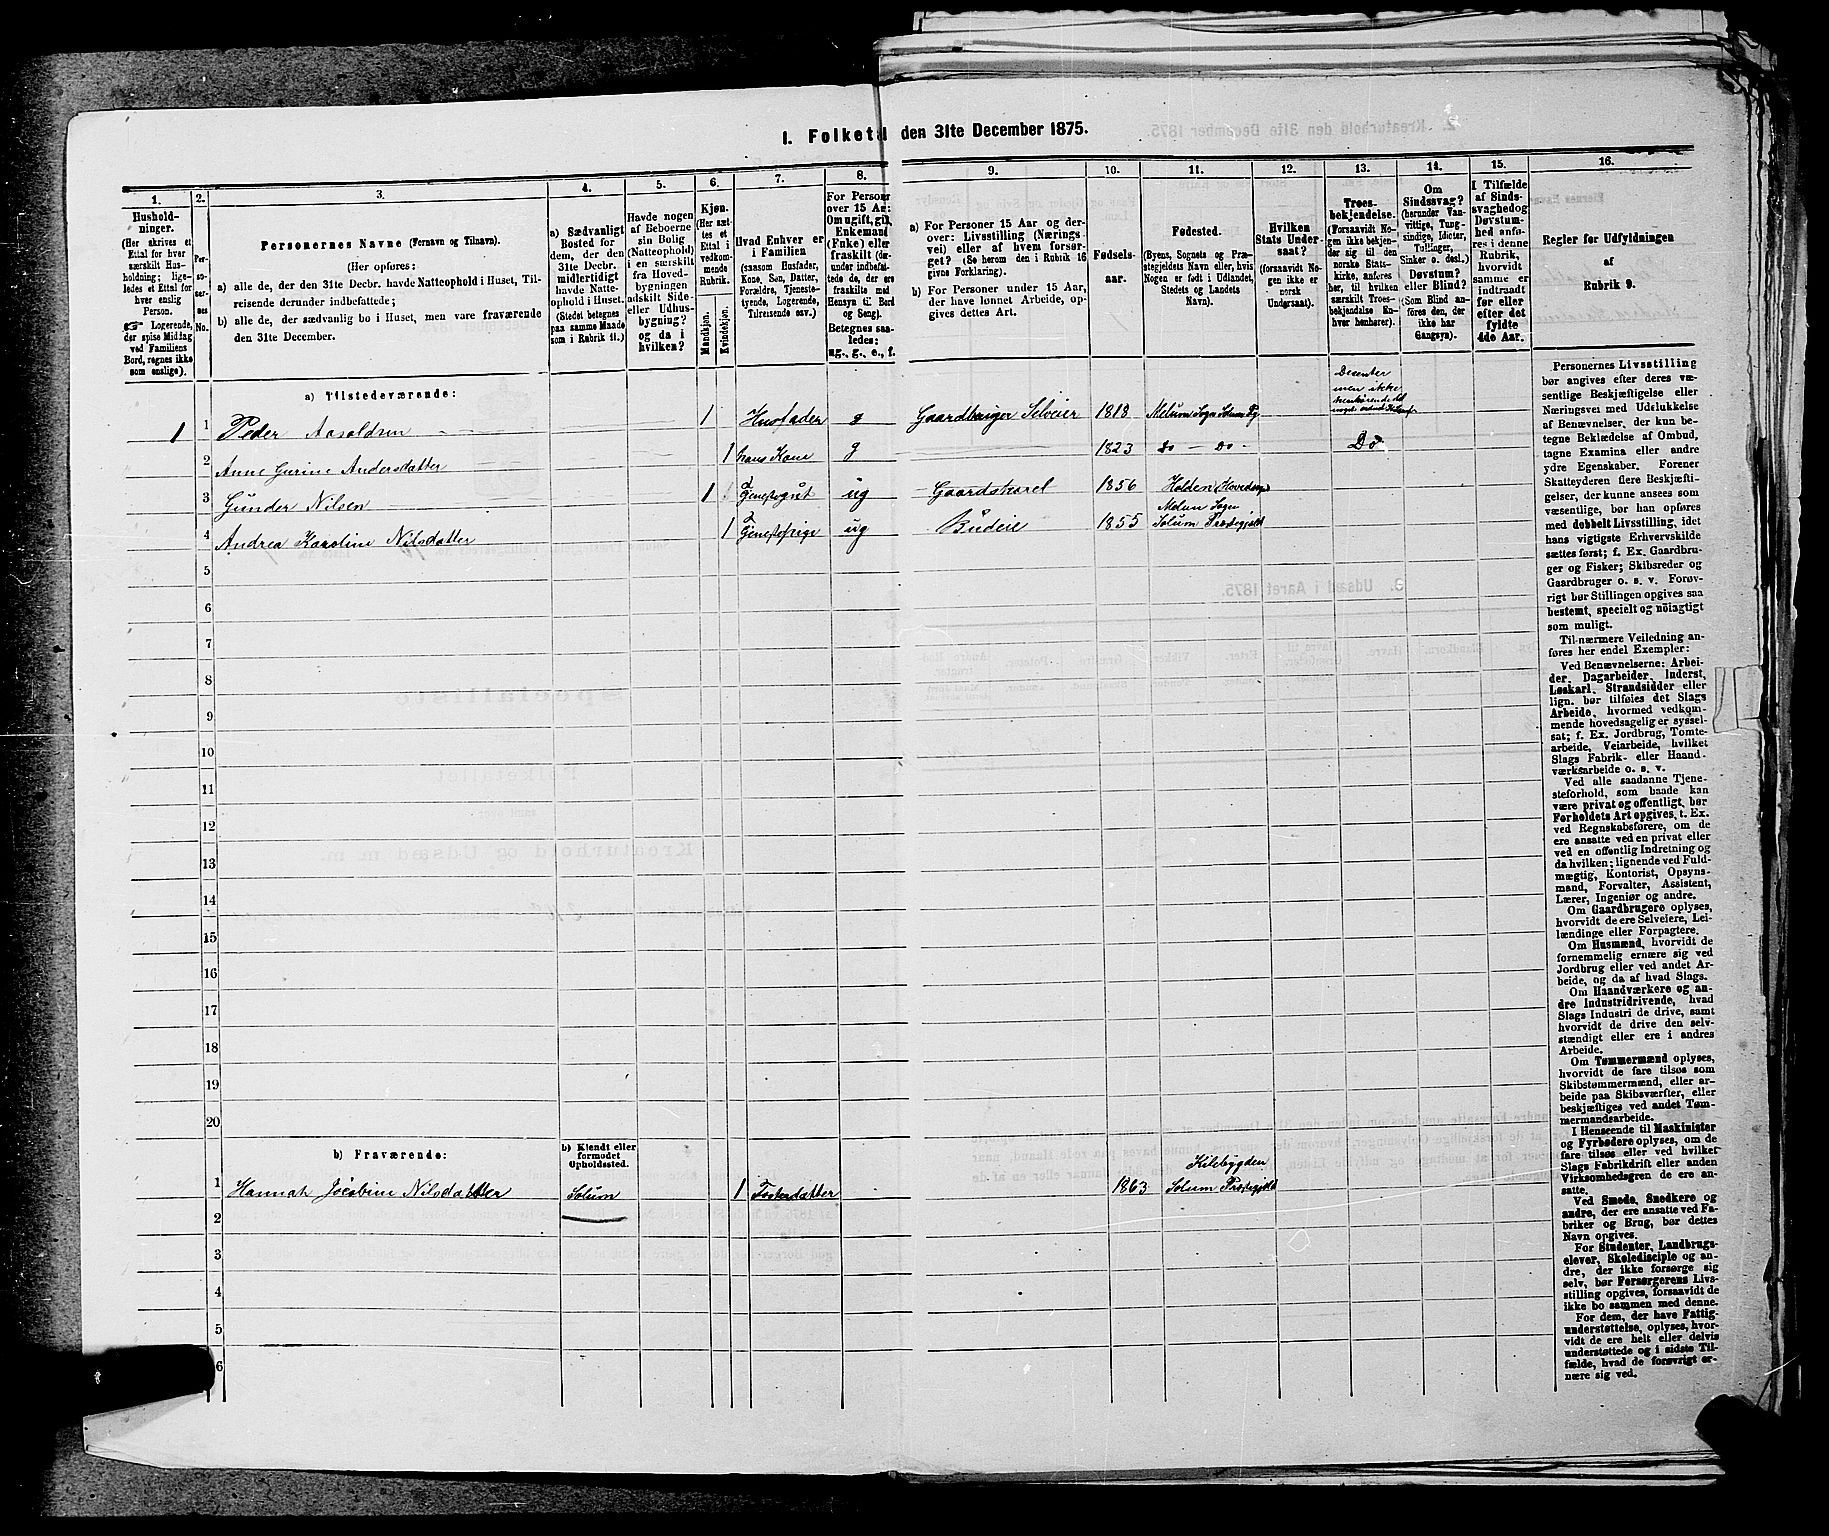 1. Folketal den 31te December 1875.
1. 2. 3. 4. 5. 6. 7. 8. 9. 10. 11. 12. 13. 14. 15. 16.
Hushold-
ninger.
(Her skrives et
Ettal for hver
særskilt Hus-
holdning; lige-
ledes et Ettal for
hver enslig
Person.
☞ Logerende,
der spise Middag
ved Familiens
Bord, regnes ikke
som enslige).
Per-
so-
ner-
nes
No.
Personernes Navne (Fornavn og Tilnavn).
(Her opføres:
a) alle de, der den 31te Decbr. havde Natteophold i Huset, Til-
reisende derunder indbefattede;
b) alle de, der sædvanlig bo i Huset, men vare fraværende
den 31te December.
a) Sædvanligt
Bosted for
dem, der den
31te Decbr.
midlertidigt
havde Natte-
ophold i Huset.
(Stedet betegnes
paa samme Maade
som i Rubrik 11.)
Havde nogen
af Beboerne
sin Bolig
(Natteophold)
i en særskilt
fra Hoved-
bygningen
adskilt Side-
eller Udhus-
bygning?
og da i
hvilken?
Kjøn.
(Her sæt-
tes et
Ettal i
vedkom-
mende
Rubrik.
Mandkjøn.
Kvindekjøn.
Hvad Enhver er
i Familien
(saasom Husfader,
Kone, Søn, Datter,
Forældre, Tjeneste-
tyende, Logerende,
Tilreisende osv.)
For Personer
over 15 Aar:
Om ugift, gift,
Enkemand
(Enke) eller
fraskilt (der-
under indbefat-
tede de, der ere
fraskilte med
Hensyn til Bord
og Seng).
Betegnes saa-
ledes:
ug., g., e., f.
a) For Personer 15 Aar og der-
over: Livsstilling (Nærings-
vei) eller af hvem forsør-
get? (Se herom den i Rubrik 16
givne Forklaring).
b) For Personer under 15 Aar,
der have lønnet Arbeide, op-
gives dettes Art.
Fødsels-
aar.
Fødested.
(Byens, Sognets og Præ-
stegjeldets Navn eller, hvis
Nogen er født i Udlandet,
Stedets og Landets
Navn).
Hvilken
Stats Under-
saat?
(forsaavidt No-
gen ikke er
norsk
Undersaat).
Troes-
bekjendelse.
(Forsaavidt No-
gen ikke bekjen-
der sig til den
norske Stats-
kirke, anføres
her, til hvilken
særskilt Troes-
bekjendelse En-
hver henhører).
Om
Sindssvag?
(herunder Van-
vittige, Tung-
sindige, Idioter,
Tullinger,
Sinker o. desl.)
Døvstum?
eller Blind?
(Som Blind an-
føres den, der
ikke har
Gangsyn).
I Tilfælde
af Sinds-
svaghed og
Døvstum-
hed anfø-
res i denne
Rubrik,
hvorvidt
samme er
indtraadt
før eller
efter det
fyldte
4de Aar.
Regler for Udfyldningen
af
Rubrik 9.
a) Tilstedeværende:
Desenter
men ikke
1 1 Peder Aasoldsen 1 Husfader g Gaardbruger Selveier 1818 Melum Sogn Solum Pg
2 Anne Gurine Andersdatter 1 hans Kone g 1823 Do — Do — Do
3 Gunder Nilsen 1 Tjenestegut ug Gaardskarel 1856 Holden Hovedsogn
Melum Sogn
4 Andrea Karoline Nilsdatter 1 Tjenestepige ug Budeie 1855 Solum Præstegjeld
5
6
7
8
9
10
11
12
13
14
15
16
17
18
19
20
b) Fraværende:
b) Kjendt eller
formodet
Opholdssted.
Kilebygden
1 Hannah Jocobine Nilsdatter Solum 1 Fosterdatter 1863 Solum Præstegjeld
2
3
4
5
6
Personernes Livsstilling
bør angives efter deres væ-
sentlige Beskjæftigelse eller
Næringsvei med Udelukkelse
af Benævnelser, der kun be-
tegne Beklædelse af Ombud,
tagne Examina eller andre
ydre Egenskaber. Forener
Skatteyderen flere Beskjæfti-
gelser, der kunne ansees som
væsentlige, bør han opføres
med dobbelt Livsstilling, idet
hans vigtigste Erhvervskilde
sættes først; f. Ex. Gaardbru-
ger og Fisker; Skibsreder og
Gaardbruger o. s. v. Forøv-
rigt bør Stillingen opgives saa
bestemt, specielt og nöiagtigt
som muligt.
Til nærmere Veiledning an-
føres her endel Exempler:
Ved Benævnelserne: Arbei-
der, Dagarbeider, Inderst,
Løskarl, Strandsidder eller
lign. bør tilføies det Slags
Arbeide, hvormed vedkom-
mende hovedsagelig er syssel-
sat; f. Ex. Jordbrug, Tomte-
arbeide, Veiarbeide, hvilket
Slags Fabrik- eller Haand-
værksarbeide o. s. v.
Ved alle saadanne Tjene-
steforhold, som baade kan
være privat og offentligt, bør
Forholdets Art opgives, t. Ex.
ved Regnskabsførere, om de
ere ansatte ved en privat eller
ved en offentlig Indretning og
da hvilken; lignende ved Fuld-
mægtig, Kontorist, Opsyns-
mand, Forvalter, Assistent,
Lærer, Ingeniør og andre.
Om Gaardbrugere oplyses,
hvorvidt de ere Selveiere, Lei-
lændinge eller Forpagtere.
Om Husmænd, hvorvidt de
fornemmelig ernære sig ved
Jordbrug eller ved andet Ar-
beide, og da af hvad Slags.
Om Haandværkere og an-
dre Industridrivende, hvad
Slags Industri de drive, samt
hvorvidt de drive den selv-
stændigt eller ere i andres
Arbeide.
Om Tømmermænd oplyses,
hvorvidt de fare tilsøs som
Skibstømmermænd, eller ar-
beide paa Skibsværfter, eller
beskjæftiges ved andet Tøm-
mermandsarbeide.
I Henseende til Maskinister
og Fyrbødere oplyses, om de
fare tilsøs eller ved hvilket
Slags Fabrikdrift eller anden
Virksomhedsgren de ere an-
satte.
Ved Smede, Snedkere og
andre, der ere ansatte ved Fa-
briker og Brug, bør dettes
Navn opgives.
For Studenter, Landbrugs-
elever, Skoledisciple og an-
dre, der ikke forsørge sig
selv, bør Forsørgerens Livs-
stilling opgives, forsaavidt de
ikke bo sammen med denne.
For dem, der have Fattig-
understøttelse, oplyses, hvor-
vidt de ere helt eller delvis
understøttede og i sidste Til-
fælde, hvad de forøvrigt er-
nære sig ved.